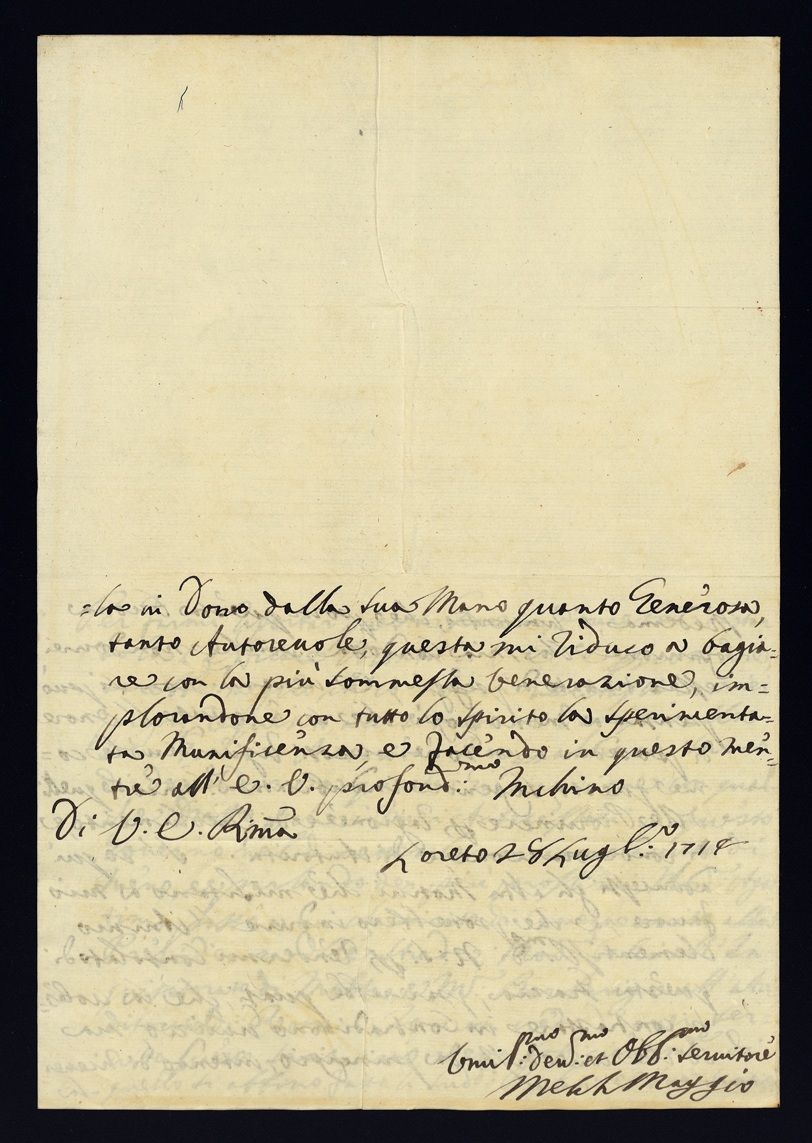 =la in Dono dalla sua Mano quanto Generosa,
tanto Autoreuole, questa mi riduco a bagia=
re con la più sommessa venerazione, im=
plorandone con tutto lo spirito la sperimenta=
ta Munificenza, e facendo in questo men=
tre all' E. V. profond.mo Inchino
Di V. E. Rma
Loreto 28 Lugl.o 1714
Umil.mo Deu.mo et Obb.mo seruitore
Melch Maggio